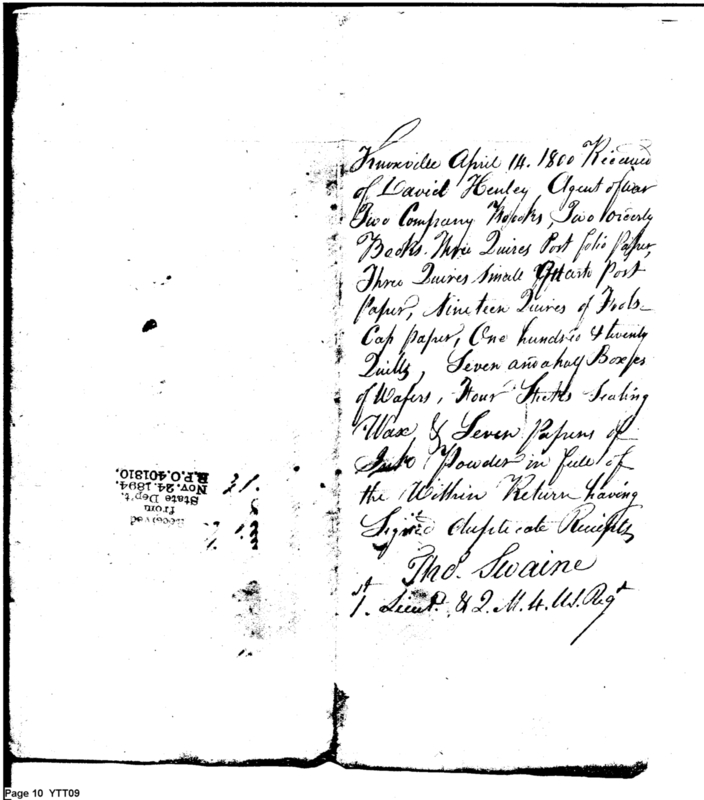 Knoxville April 14. 1800 Received
of David Henley Agent of War
Two Company Books, Two Orderly
Books. Three Quires Post folio Paper,
Three Quires small Quarto Post
Paper, Nineteen Quires of Fools-
Cap paper, One hundred & twenty
Quills, Seven and a half Boxes
of Wafers, Four Sticks Sealing
Wax & Seven Papers of
Ink Powder in full of
the Within Return having
Signed duplicate Receipts
Thos. Swaine
1st. Lieut. & Q. M. 4. US. Regt
Received
from
State Dep't.
Nov. 24. 1894.
R.P.O. 401310.
Page 10 YTT09